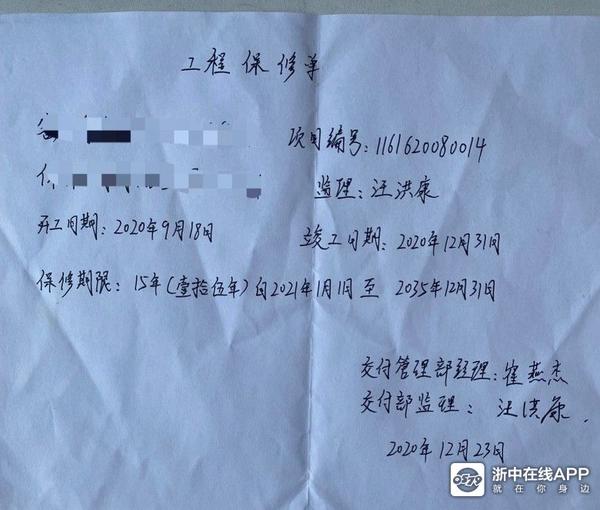 工程保修单
项目编号：1161620080014
监理：汪洪康
开工日期：2020年9月18日
竣工日期：2020年12月31日
保修期限：15年(壹拾伍年)自2021年1月1日至 2035年12月31日
交付管理部经理：崔燕杰
交付部监理：汪洪康
2020年12月23日
浙中在线APP
就在你身边